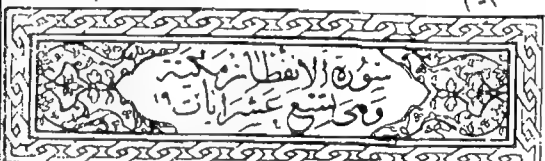 سُورَةُ الْإِنفِطَارِ مَكِّيَّة
وَهِيَ تِسْعَ عَشْرَةَ آيَات ١٩